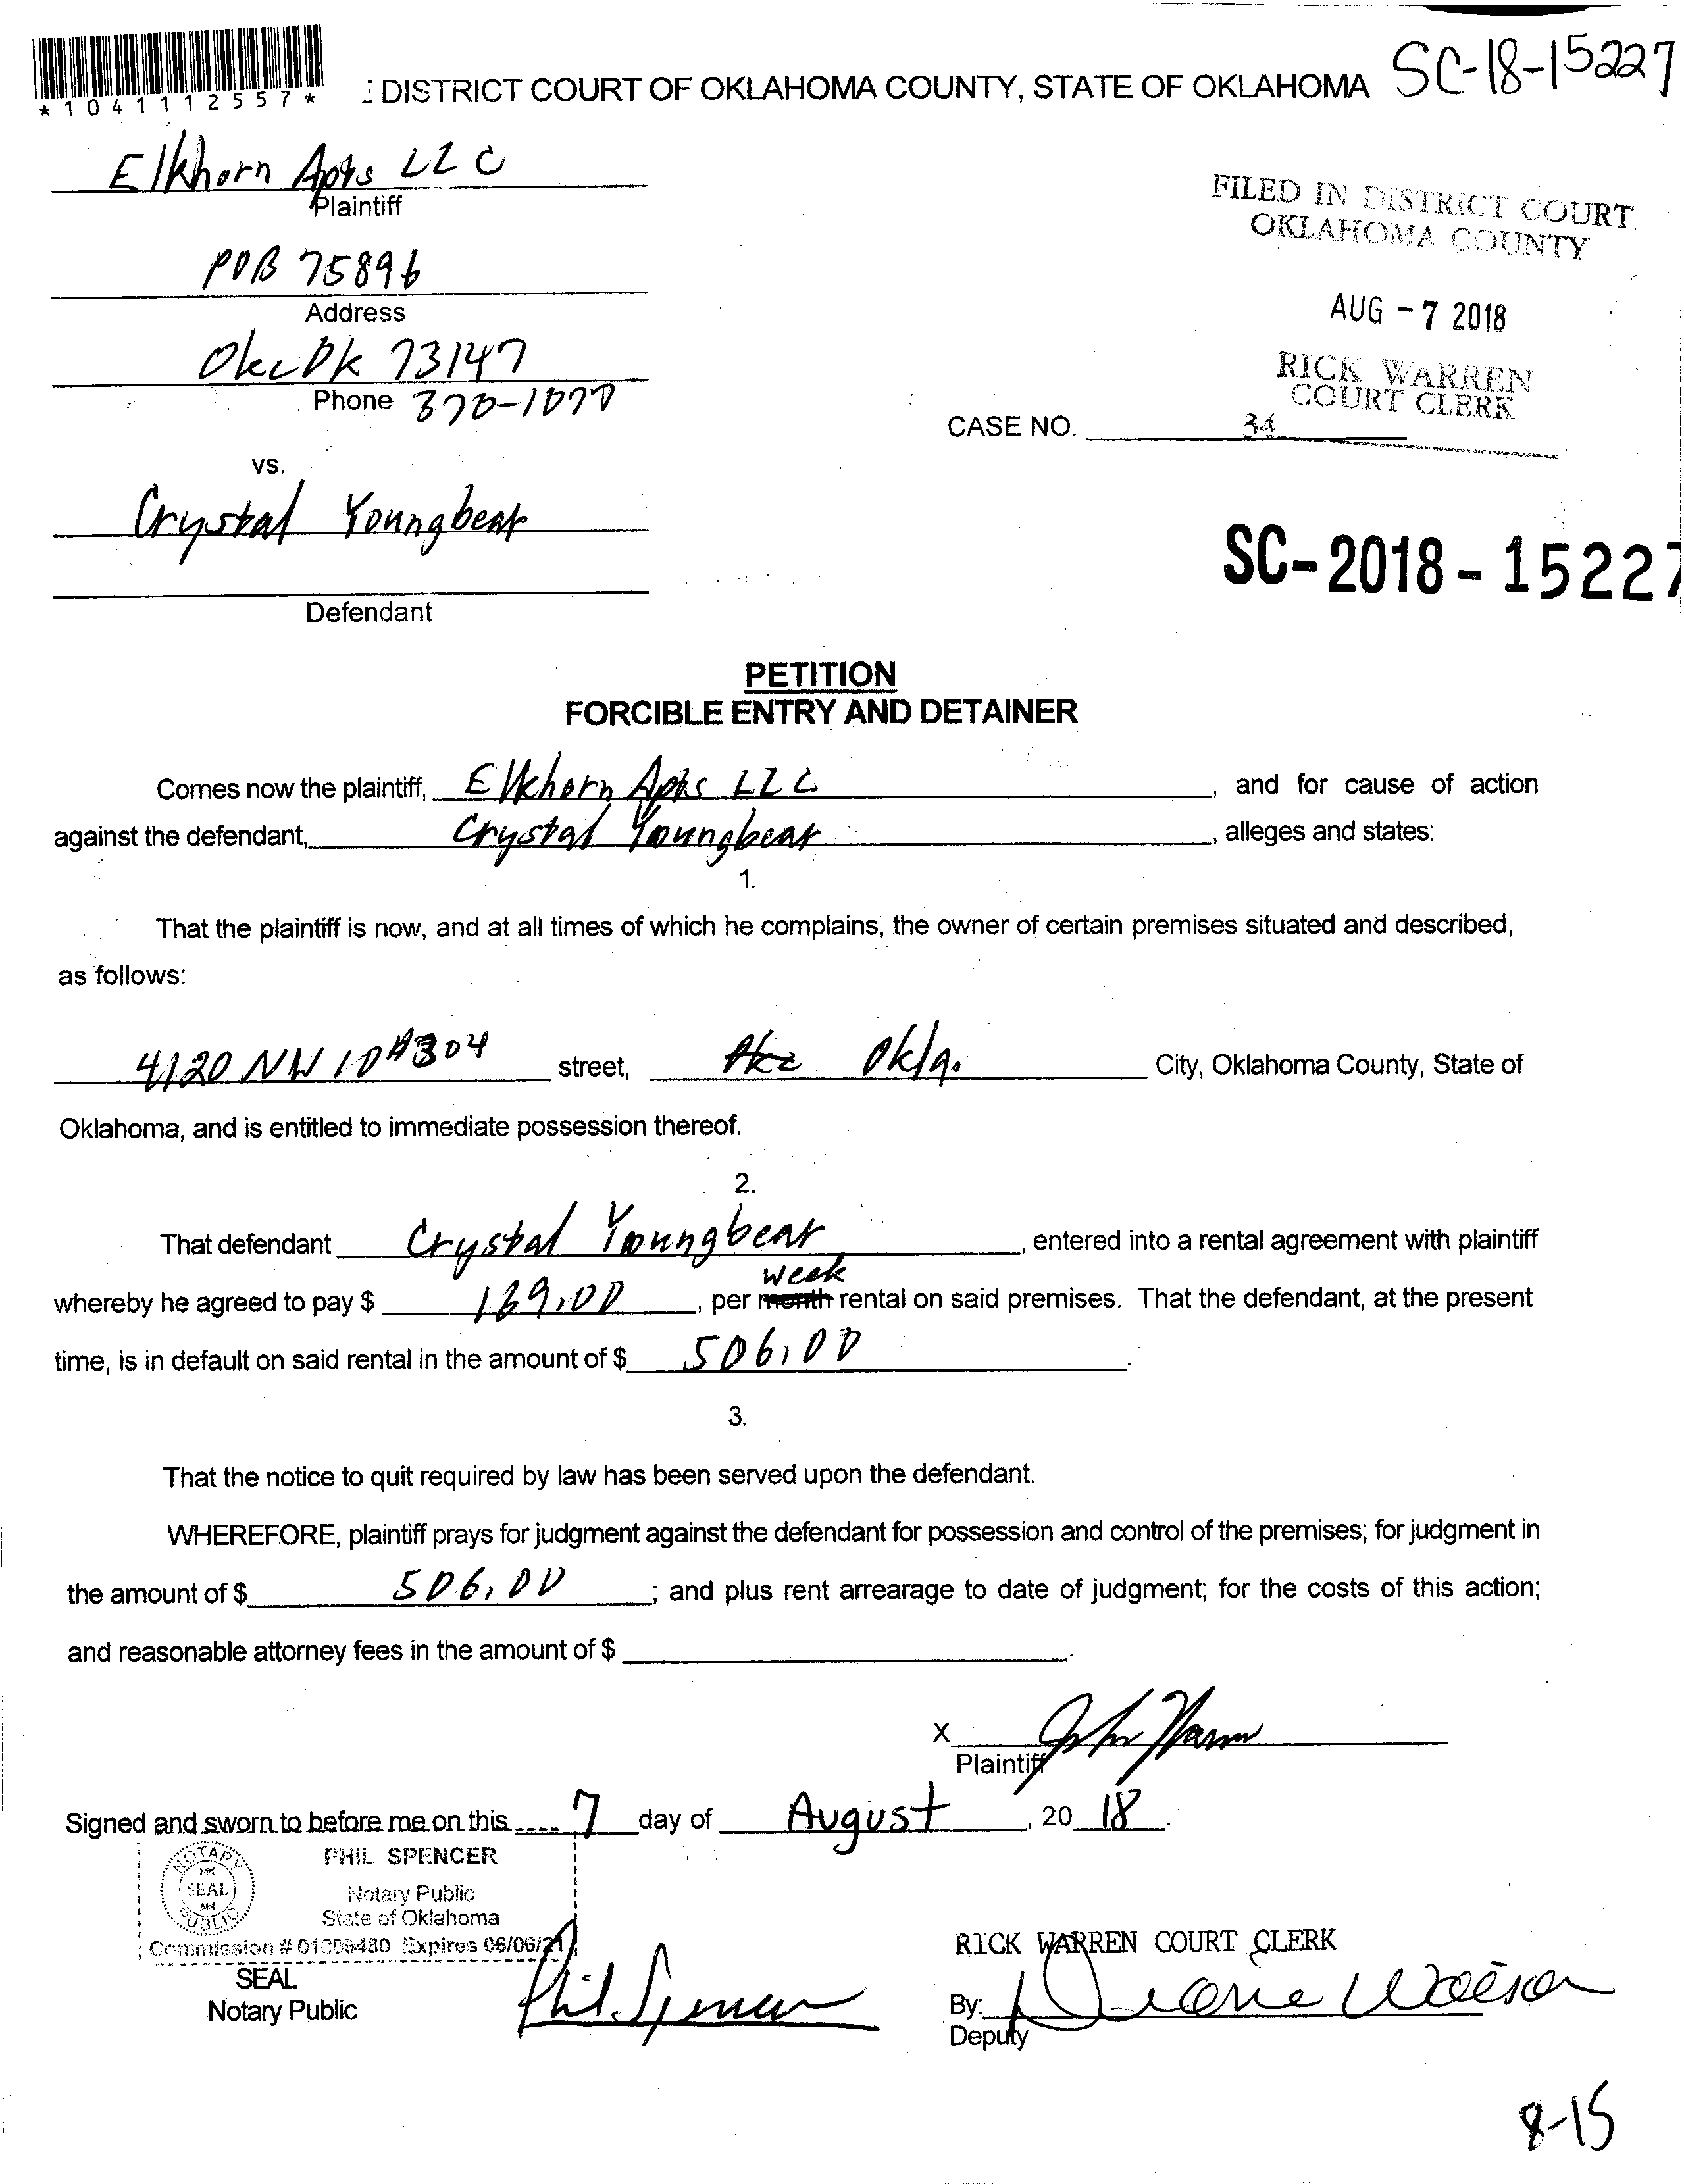 *1041112557*
: DISTRICT COURT OF OKLAHOMA COUNTY, STATE OF OKLAHOMA SC-18-15227
Elkhorn Apts LLC
Plaintiff
FILED IN DISTRICT COURT
OKLAHOMA COUNTY
POB 75896
Address
AUG - 7 2018
Okc Ok 73147
Phone 370-1077
RICK WARREN
COURT CLERK
CASE NO. 34
vs.
Crystal Youngbear
SC-2018-15227
Defendant
PETITION
FORCIBLE ENTRY AND DETAINER
Comes now the plaintiff, Elkhorn Apts LLC, and for cause of action
against the defendant, Crystal Youngbear, alleges and states:
1.
That the plaintiff is now, and at all times of which he complains, the owner of certain premises situated and described,
as follows:
4120 NW 10 #304 street, Okla. City, Oklahoma County, State of
Oklahoma, and is entitled to immediate possession thereof.
2.
That defendant Crystal Youngbear, entered into a rental agreement with plaintiff
week
whereby he agreed to pay $ 169.00, per month rental on said premises. That the defendant, at the present
time, is in default on said rental in the amount of $ 506.00.
3.
That the notice to quit required by law has been served upon the defendant.
WHEREFORE, plaintiff prays for judgment against the defendant for possession and control of the premises; for judgment in
the amount of $ 506.00; and plus rent arrearage to date of judgment; for the costs of this action;
and reasonable attorney fees in the amount of $ .
X
Plaintiff
Signed and sworn to before me on this 7 day of August, 20 18.
NOTARY SEAL PUBLIC
PHIL SPENCER
Notary Public
State of Oklahoma
Commission # 01009480 Expires 06/06/21
SEAL
Notary Public
Phil Spencer
RICK WARREN COURT CLERK
By:
Deputy
8-15